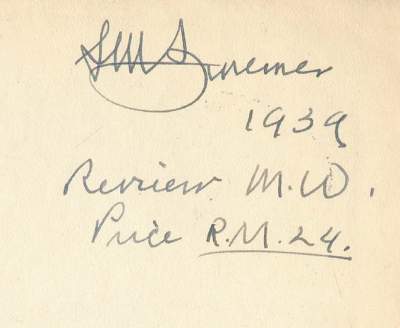 1939
Review M.W.
Price R.M.24.